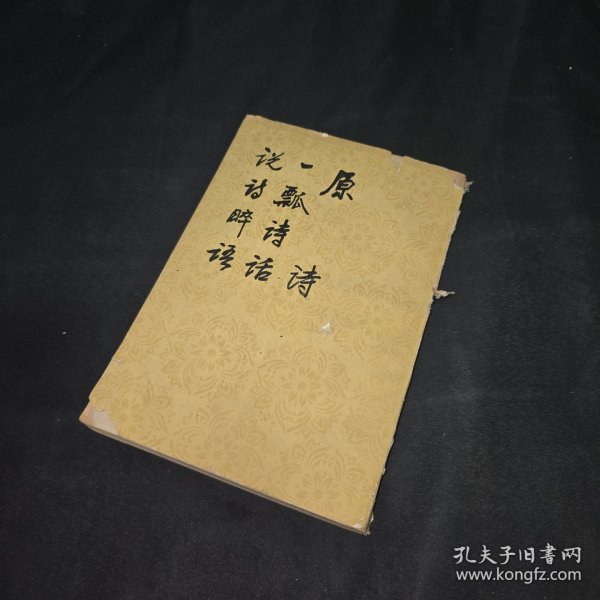 原诗
一瓢诗话
说诗晬语
孔夫子旧書网
www.kongfz.com